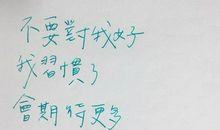 不要對我好
我習慣了
會期待更多